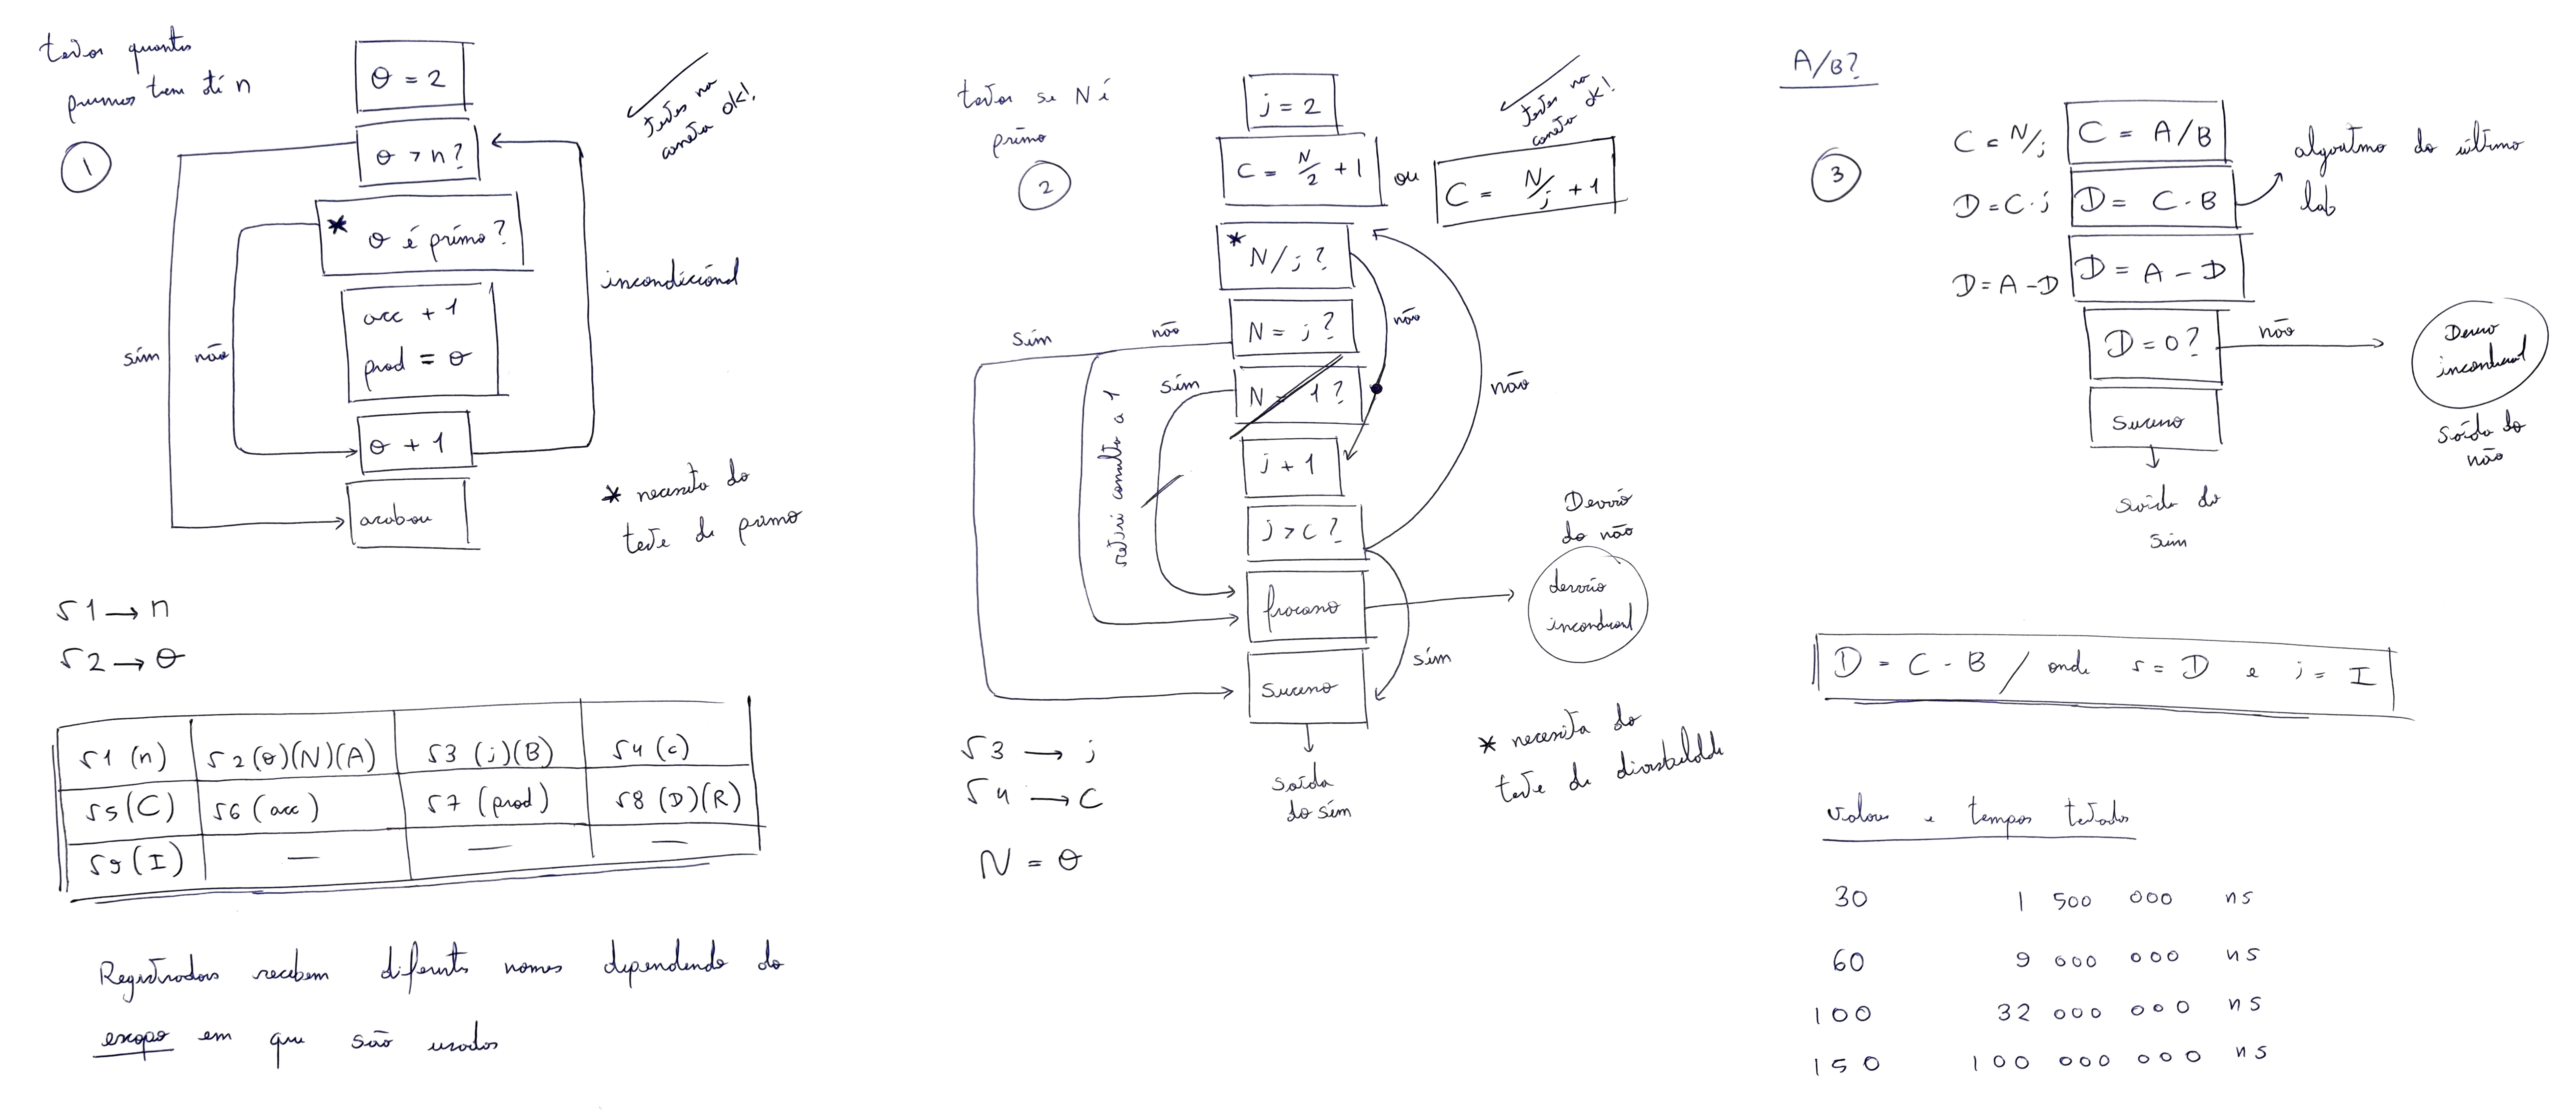 testar quantos
primos tem até n
1
θ = 2
θ > n?
* θ é primo?
acc + 1
prod = θ
θ + 1
acabou
sim
não
incondicional
testes na
caneta ok!
* necessita do
teste de primo
r1 → n
r2 → θ
r1 (n) r2 (θ)(N)(A) r3 (j)(B) r4 (c)
r5 (C) r6 (acc) r7 (prod) r8 (D)(R)
r9 (I) — — —
Registradores recebem diferentes nomes dependendo do
escopo em que são usados
testar se N é
primo
2
j = 2
C = N/2 + 1 ou C = N/j + 1
testes na
caneta ok!
* N/j ?
não
N = j ?
sim
não
N = 1 ?
sim
retirei consulta a 1
j + 1
j > c ?
não
sim
fracasso
sucesso
Desvio
do não
desvio
incondicional
saída
do sim
* necessita do
teste de divisibilidade
r3 → j
r4 → C
N = θ
A/B?
3
C = N/j C = A/B
D = C · j D = C · B
algoritmo do último
lab
D = A - D D = A - D
D = 0 ?
não
Desvio
incondicional
saída do
não
sucesso
saída do
sim
D = C · B / onde r = D e j = I
valores e tempos testados
30 1 500 000 ns
60 9 000 000 ns
100 32 000 000 ns
150 100 000 000 ns